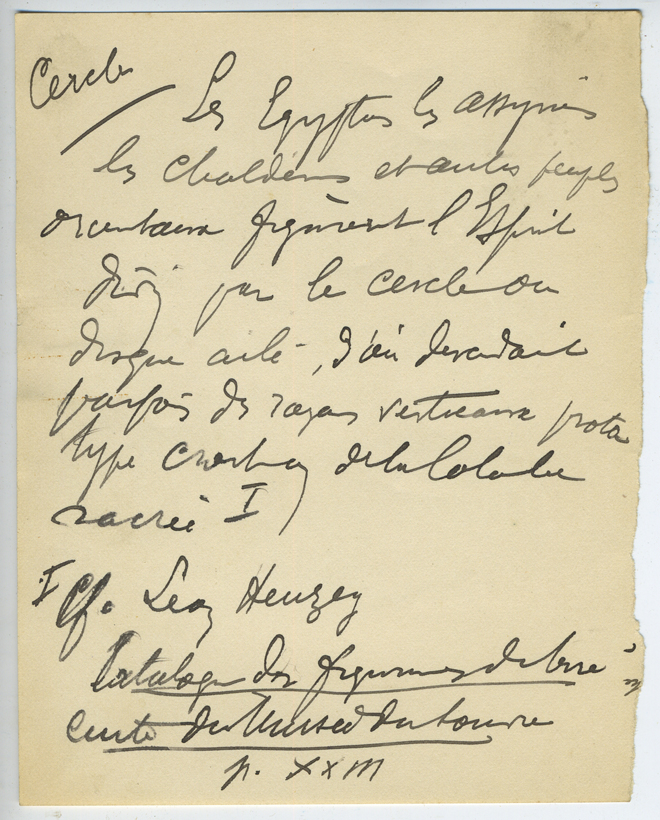 Cercle
Les Egyptiens les assyriens
les chaldéens et autres peuples
orientaux figurèrent l'Esprit
divin par le cercle ou
disque ailé, d'où descendait
parfois des rayons verticaux proto
type de la Colombe
sacrée I
I Cf. Léon Heuzey
Catalogue des figurines de terre
cuite du Musée du Louvre
p. XXIII